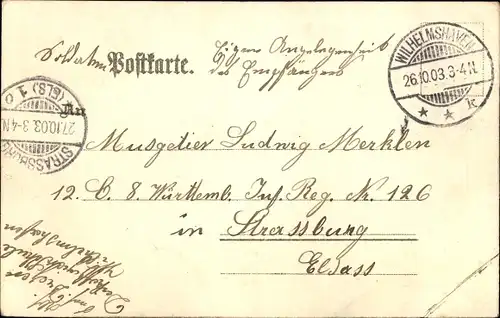 Soldaten Postkarte. Eigene Angelegenheit
des Empfängers
WILHELMSHAVEN
26.10.03.3-4N.
* * k
STRASSBURG
(ELS) 1 o
27.10.03.3-4N.
An
Musgetier Ludwig Merklen
12. C. 8. Württemb. Inf. Reg. Nr. 126
in Strassburg
Elsass